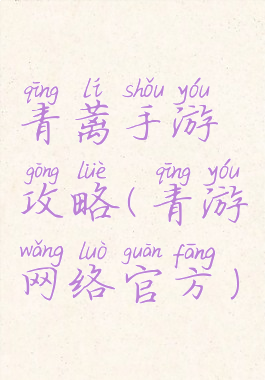 qīng lí shǒu yóu
青蓠手游
gōng lüè qīng yóu
攻略(青游
wǎng luò guān fāng
网络官方)